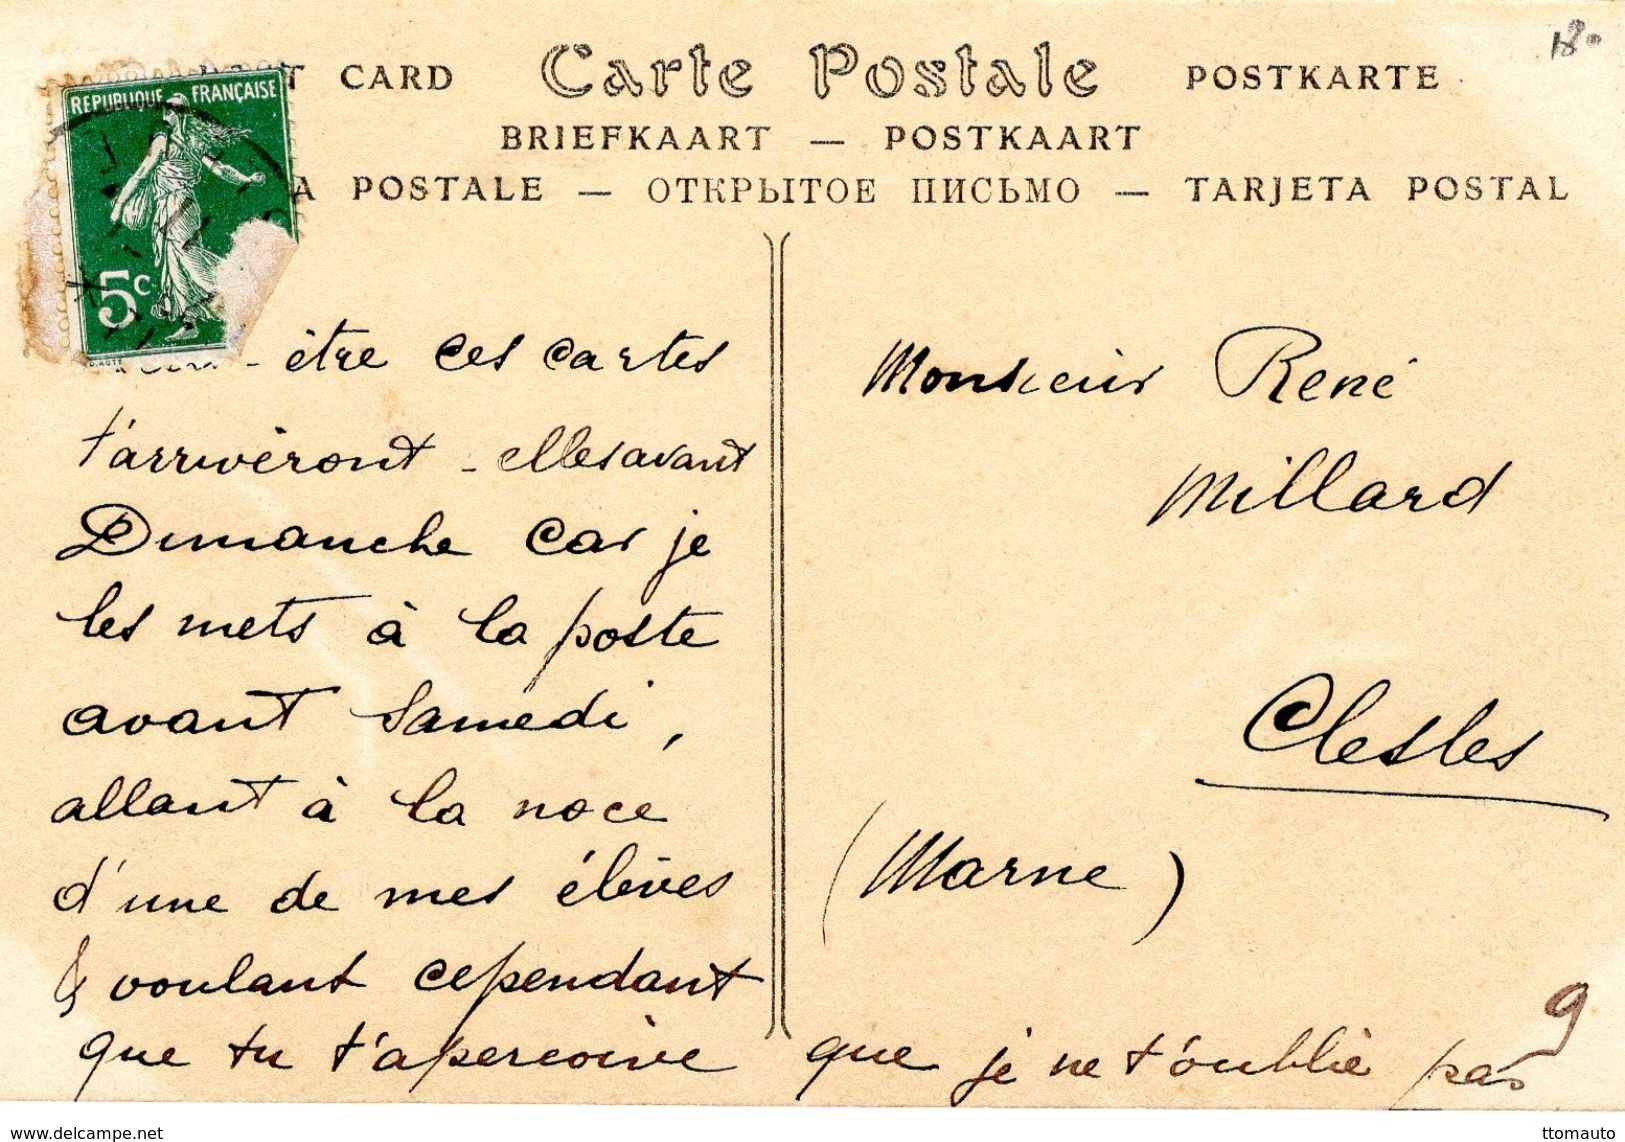 CARD Carte Postale POSTKARTE
18
BRIEFKAART — POSTKAART
POSTALE — ОТКРЫТОЕ ПИСЬМО — TARJETA POSTAL
REPUBLIQUE FRANÇAISE
5c
- être ces cartes
t'arrivèront - elles avant
Dimanche car je
les mets à la poste
avant Samedi,
allant à la noce
d'une de mes élèves
& voulant cependant
que tu t'apercoive que je ne t'oublie pas
Monsieur René
Millard
Clesles
(Marne)
9
www.delcampe.net
ttomauto